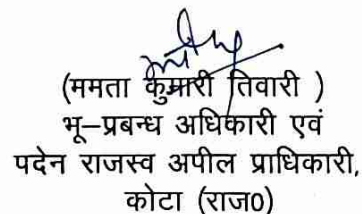 (ममता कुमारी तिवारी )
भू–प्रबन्ध अधिकारी एवं
पदेन राजस्व अपील प्राधिकारी,
कोटा (राज0)